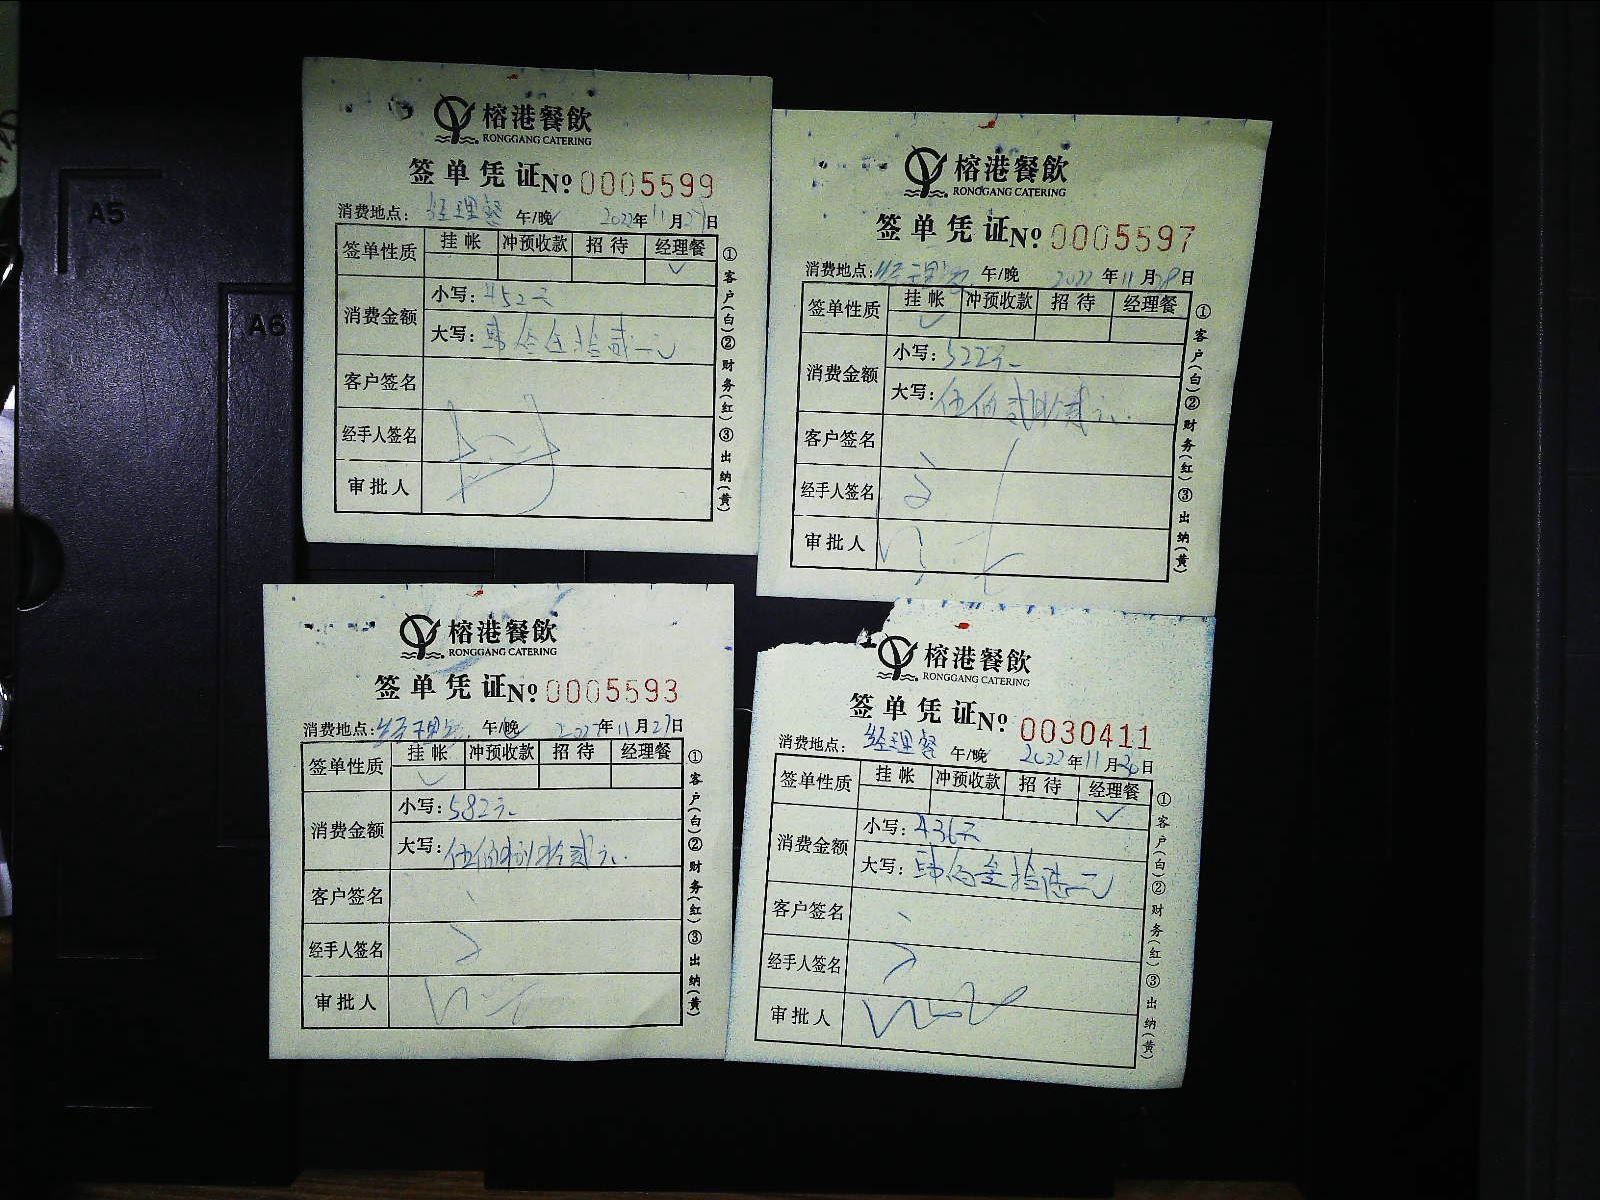 榕港餐飲
RONGGANG CATERING
签单凭证 No 0005599
消费地点: 经理餐 午/晚 2022年11月27日
签单性质 挂帐 冲预收款 招待 经理餐
✓
消费金额 小写: 452元
大写: 肆佰伍拾贰元
客户签名
经手人签名
审批人
①客户(白)②财务(红)③出纳(黄)
榕港餐飲
RONGGANG CATERING
签单凭证 No 0005597
消费地点: 经理餐 午/晚 2022年11月28日
签单性质 挂帐 冲预收款 招待 经理餐
✓
消费金额 小写: 522元
大写: 伍佰贰拾贰元
客户签名
经手人签名
审批人
①客户(白)②财务(红)③出纳(黄)
A5
A6
榕港餐飲
RONGGANG CATERING
签单凭证 No 0005593
消费地点: 经理餐 午/晚 2022年11月27日
签单性质 挂帐 冲预收款 招待 经理餐
✓
消费金额 小写: 582元
大写: 伍佰捌拾贰元
客户签名
经手人签名
审批人
①客户(白)②财务(红)③出纳(黄)
榕港餐飲
RONGGANG CATERING
签单凭证 No 0030411
消费地点: 经理餐 午/晚 2022年11月日
签单性质 挂帐 冲预收款 招待 经理餐
✓
消费金额 小写: 436元
大写: 肆佰叁拾陆元
客户签名
经手人签名
审批人
①客户(白)②财务(红)③出纳(黄)